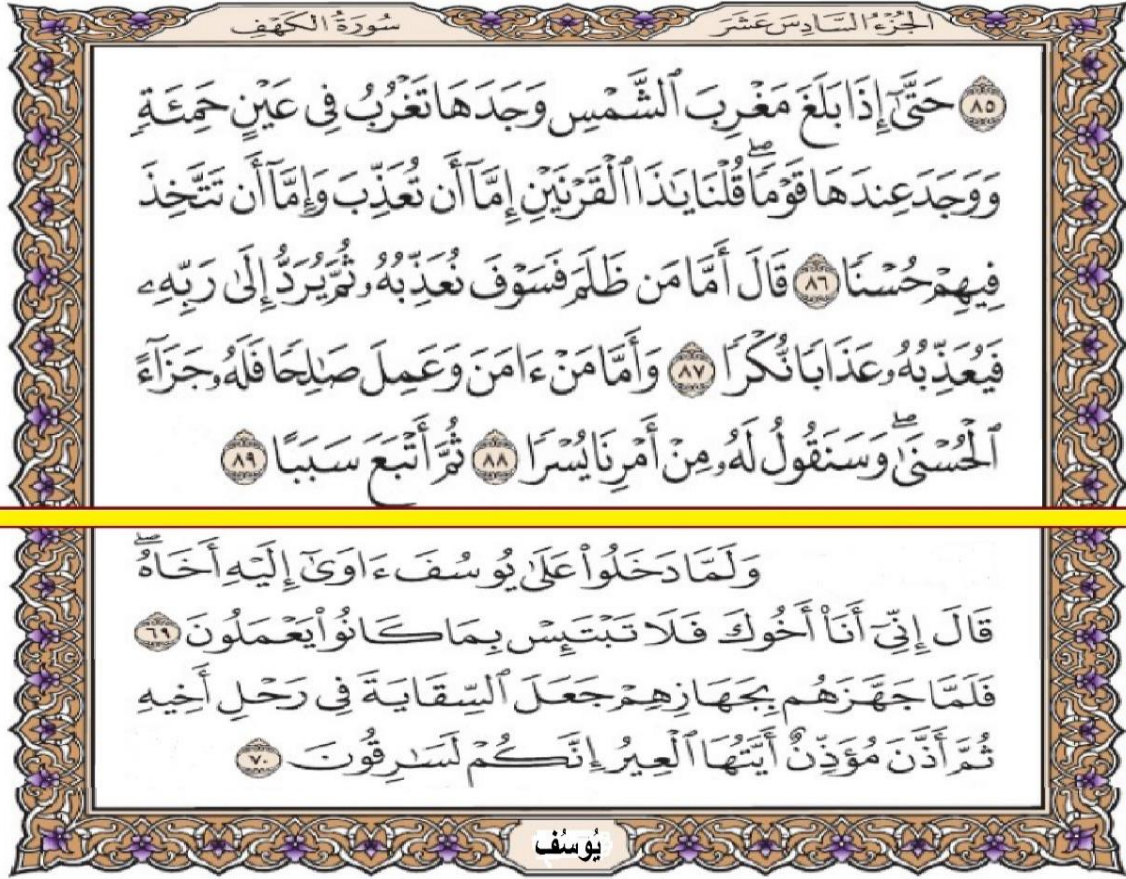 الجُزْءُ السَّادِسَ عَشَرَ سُورَةُ الكَهْفِ
٨٥ حَتَّىٰٓ إِذَا بَلَغَ مَغْرِبَ ٱلشَّمْسِ وَجَدَهَا تَغْرُبُ فِى عَيْنٍ حَمِئَةٍ
وَوَجَدَ عِندَهَا قَوْمًاۖ قُلْنَا يَٰذَا ٱلْقَرْنَيْنِ إِمَّآ أَن تُعَذِّبَ وَإِمَّآ أَن تَتَّخِذَ
فِيهِمْ حُسْنًا ٨٦ قَالَ أَمَّا مَن ظَلَمَ فَسَوْفَ نُعَذِّبُهُۥ ثُمَّ يُرَدُّ إِلَىٰ رَبِّهِۦ
فَيُعَذِّبُهُۥ عَذَابًا نُّكْرًا ٨٧ وَأَمَّا مَنْ ءَامَنَ وَعَمِلَ صَٰلِحًا فَلَهُۥ جَزَآءً
ٱلْحُسْنَىٰۖ وَسَنَقُولُ لَهُۥ مِنْ أَمْرِنَا يُسْرًا ٨٨ ثُمَّ أَتْبَعَ سَبَبًا ٨٩
وَلَمَّا دَخَلُوا۟ عَلَىٰ يُوسُفَ ءَاوَىٰٓ إِلَيْهِ أَخَاهُۖ
قَالَ إِنِّىٓ أَنَا۠ أَخُوكَ فَلَا تَبْتَئِسْ بِمَا كَانُوا۟ يَعْمَلُونَ ٦٩
فَلَمَّا جَهَّزَهُم بِجَهَازِهِمْ جَعَلَ ٱلسِّقَايَةَ فِى رَحْلِ أَخِيهِ
ثُمَّ أَذَّنَ مُؤَذِّنٌ أَيَّتُهَا ٱلْعِيرُ إِنَّكُمْ لَسَٰرِقُونَ ٧٠
يُوسُف